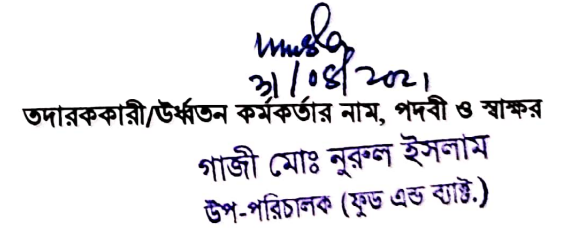 31/08/2021
তদারককারী/উর্ধ্বতন কর্মকর্তার নাম, পদবী ও স্বাক্ষর
গাজী মোঃ নূরুল ইসলাম
উপ-পরিচালক (ফুড এন্ড ব্যাক্টে.)